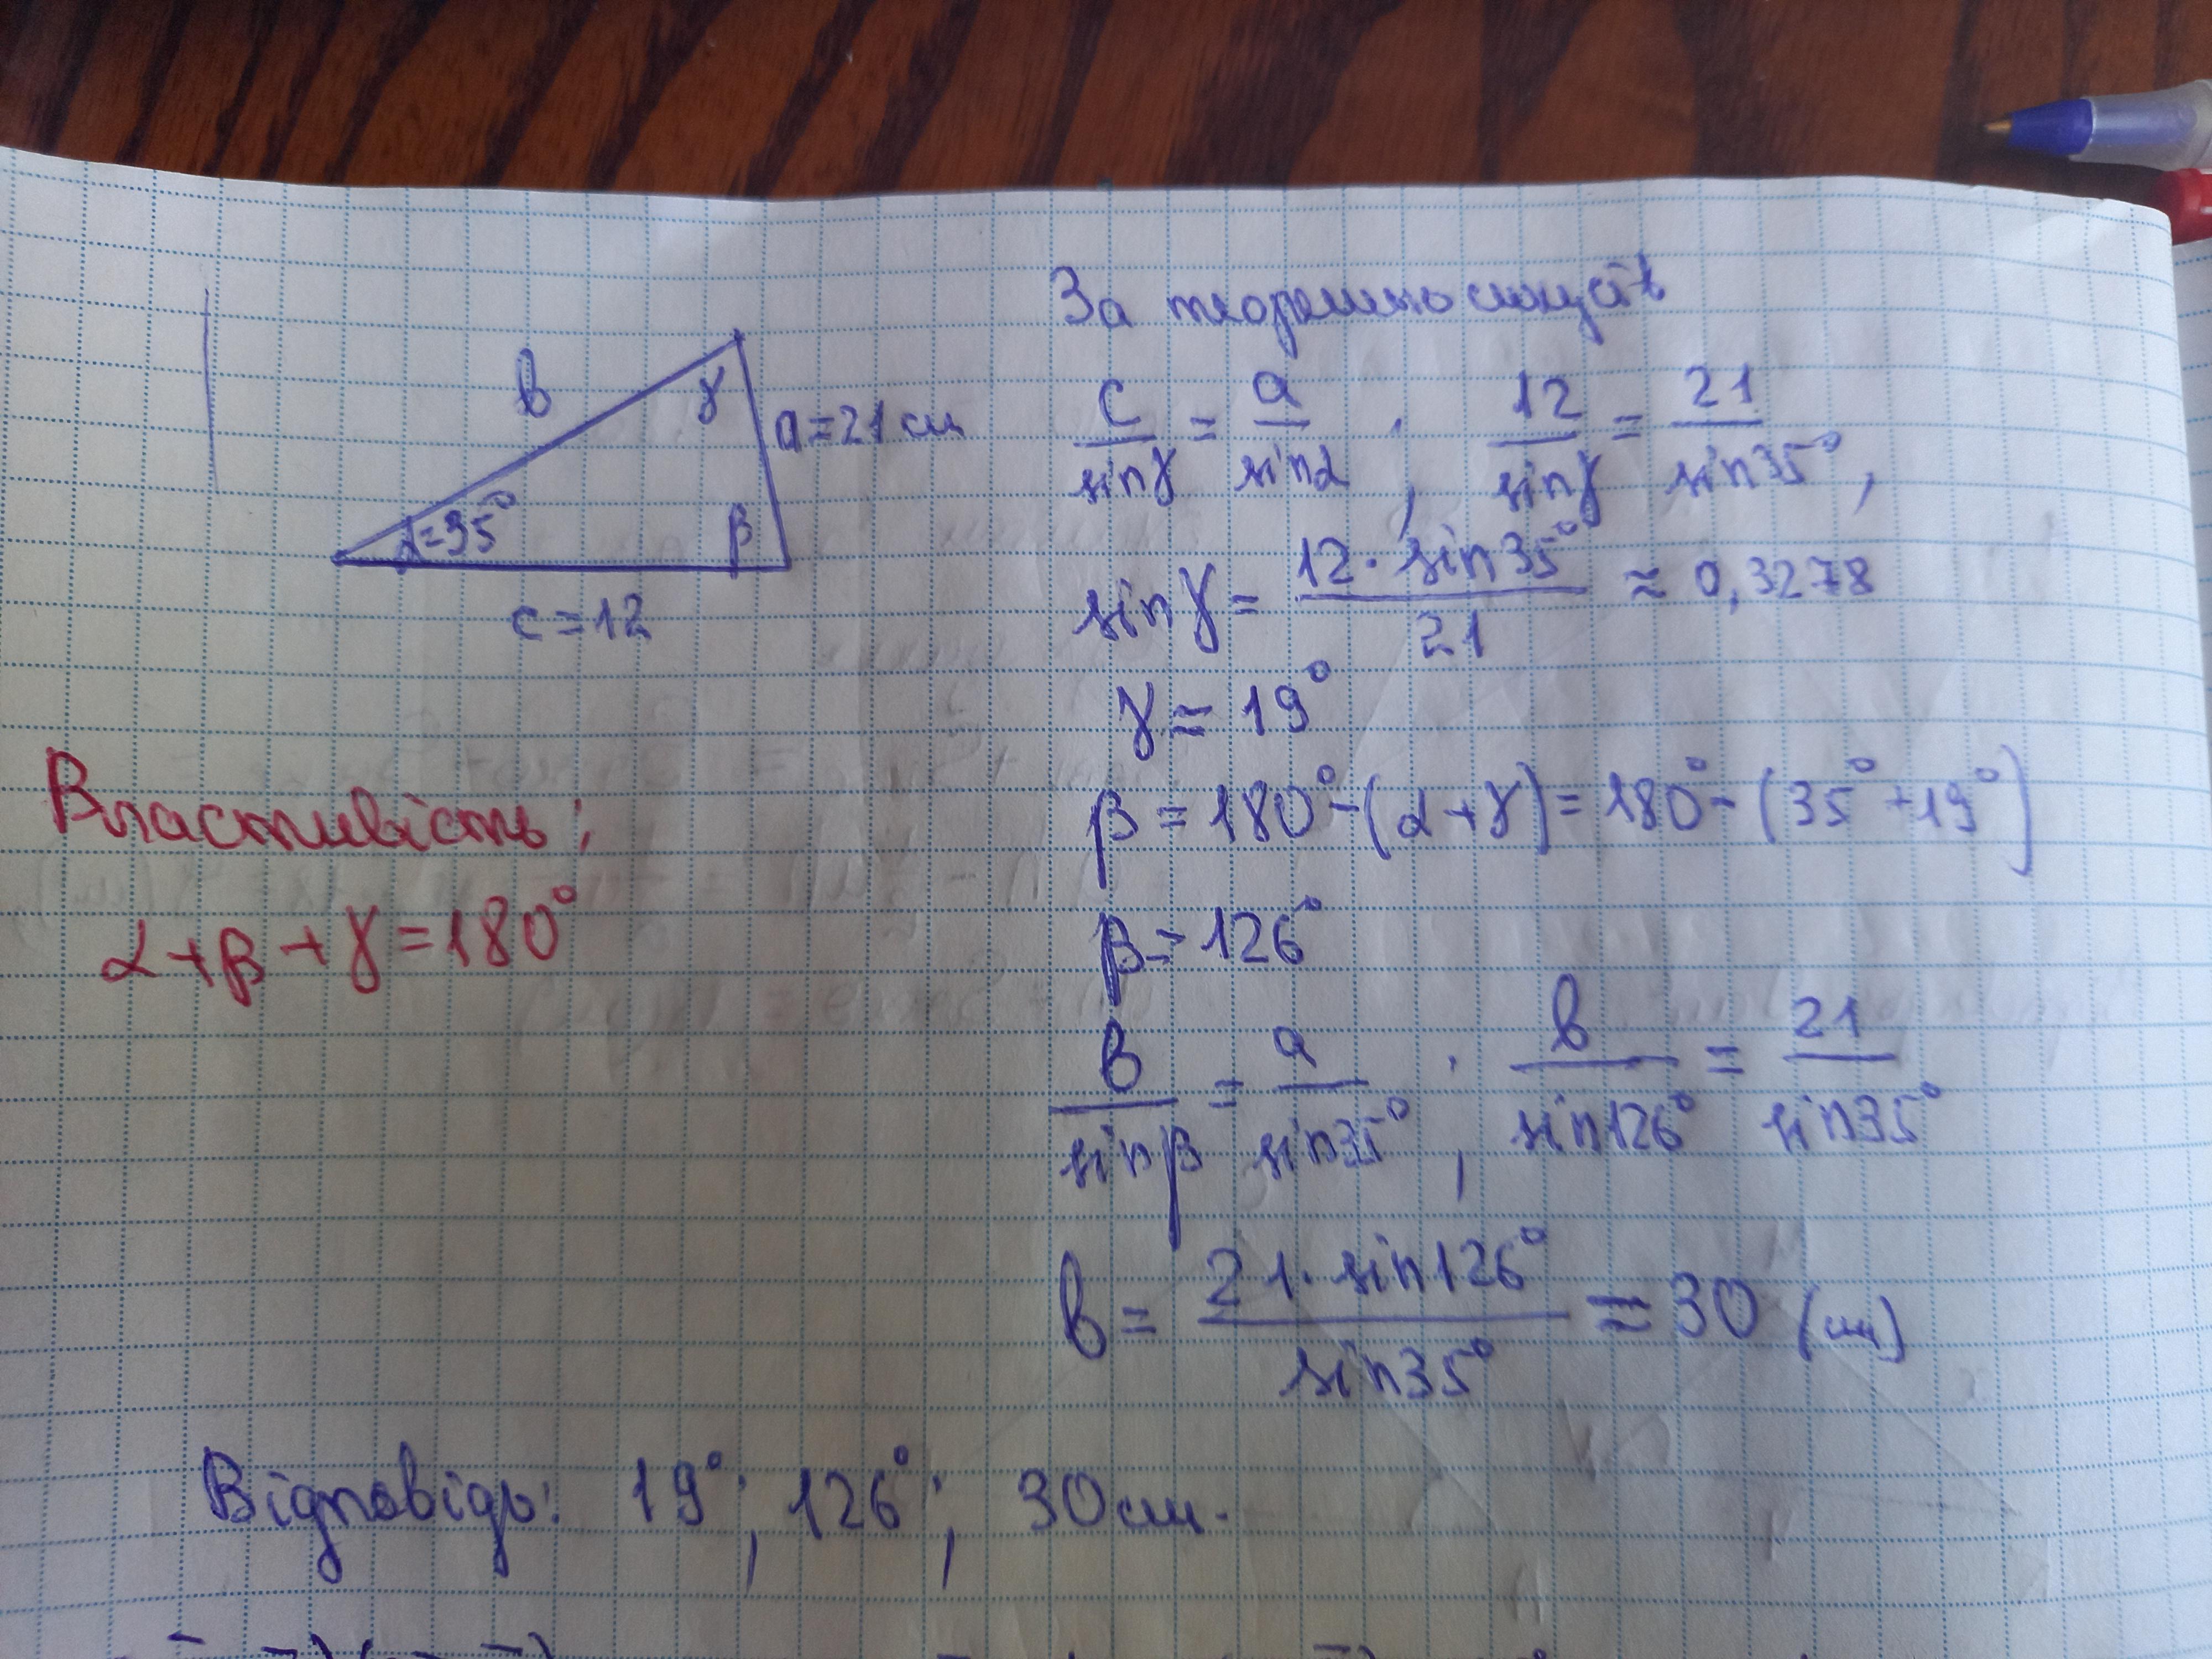 За теоремою синусів
в
γ
a=21 см
α=35°
β
c=12
c/sinγ = a/sinα , 12/sinγ = 21/sin35° ,
sinγ = 12·sin35°/21 ≈ 0,3278
γ ≈ 19°
β = 180°-(α+γ)= 180°-(35°+19°)
β = 126°
в/sinβ = a/sin35° , в/sin126° = 21/sin35°
в = 21·sin126°/sin35° ≈ 30 (см)
Властивість:
α+β+γ=180°
Відповідь: 19°; 126°; 30 см.